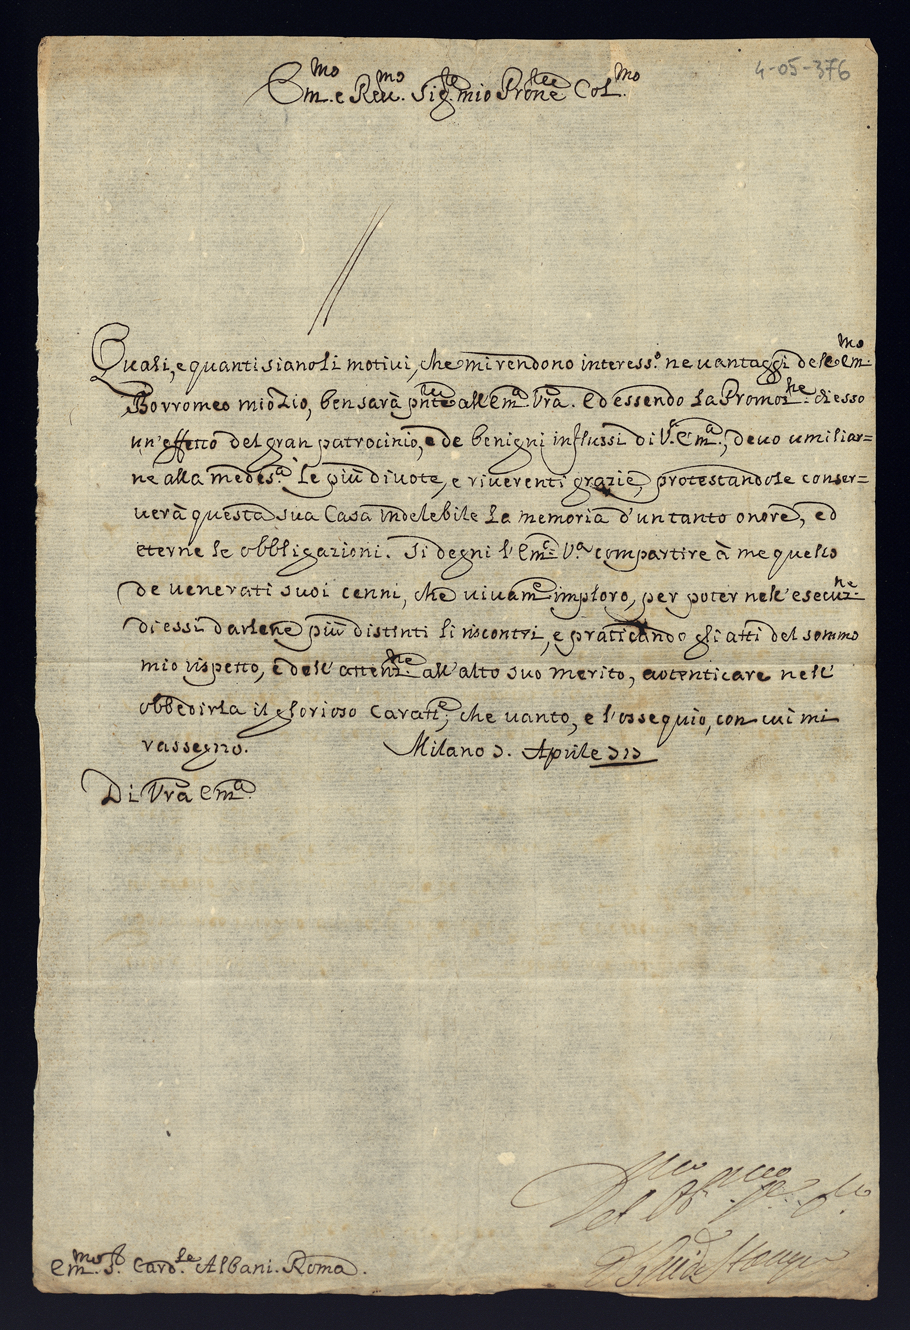 4-05-376
Em.mo e Reu.mo Sig.re mio Prone Col.mo
Quali, e quanti siano li motivi, che mi rendono interess.o ne uantaggi dell'Em.mo
Borromeo mio Zio, ben sarà pnte all'Em.a Vra. Ed essendo la Promoz.ne di esso
un'effetto del gran patrocinio, e de benigni influssi di V.a Em.a, deuo umiliar=
ne alla medes.a le più diuote, e riuerenti grazie, protestandole conser=
uerà questa sua Casa indelebile la memoria d'un tanto onore, ed
eterne le obbligazioni. Si degni l'Em.a V.a compartire à me quello
de uenerati suoi cenni, che uiuam.e imploro, per poter nell'esecuz.ne
di essi darlene più distinti li riscontri, e praticando gli atti del sommo
mio rispetto, e dell'attenz.ne all'alto suo merito, autenticare nell'
obbedirla il glorioso caratt.e, che uanto, e l'ossequio, con cui mi
rassegno. Milano Aprile
Di Vra Em.a
Em.mo S.r Card.le Albani. Roma.